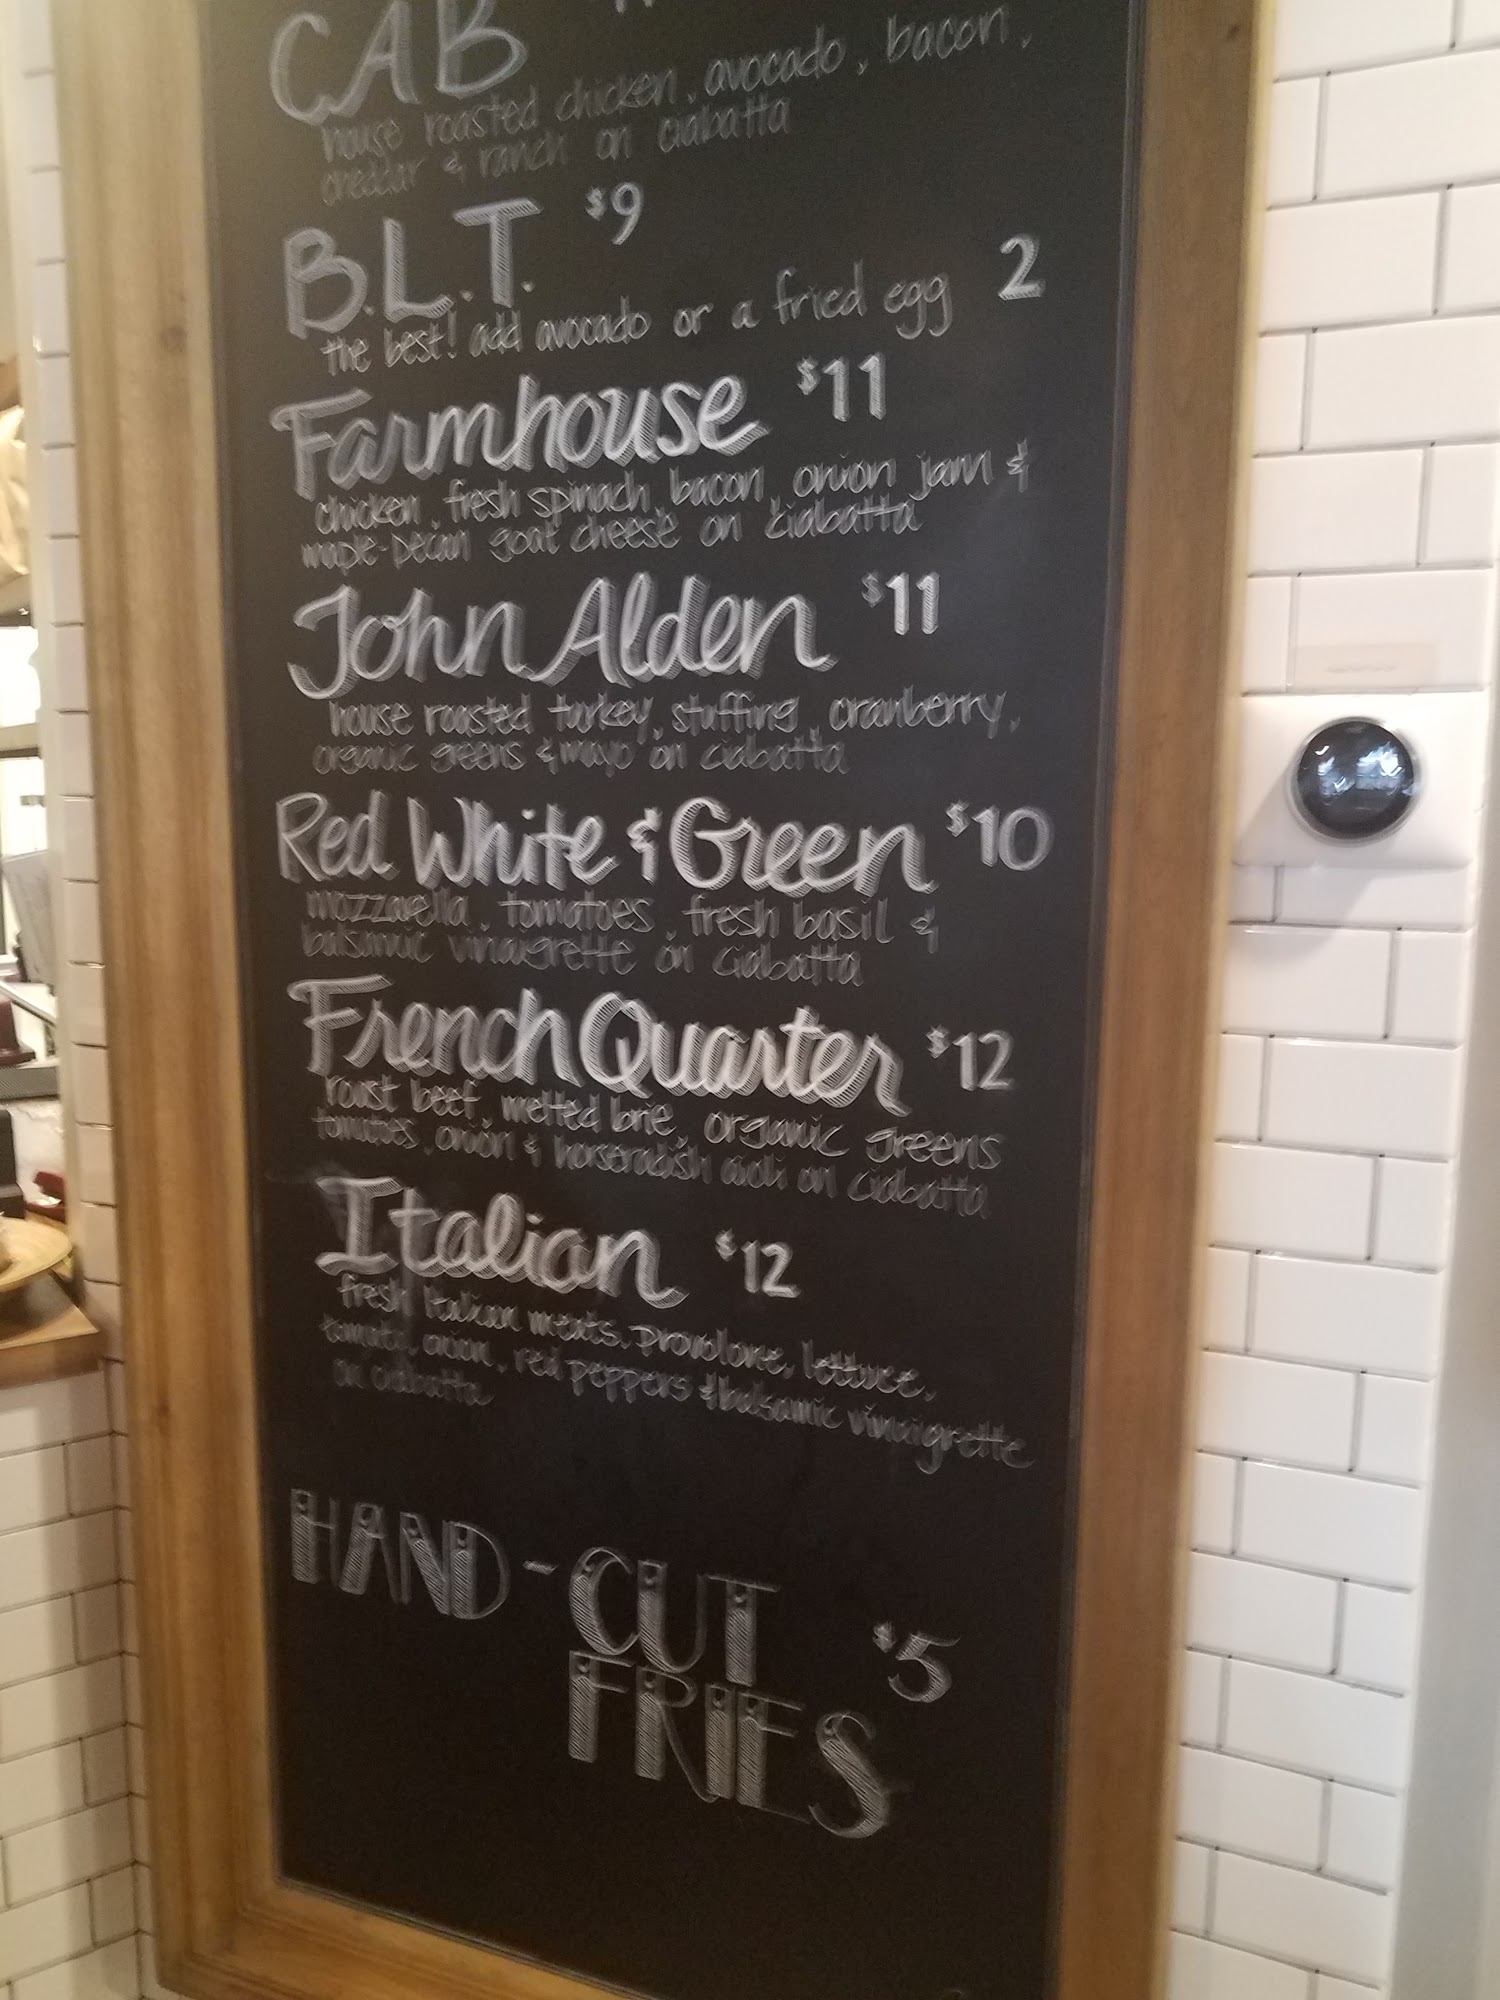 CAB
house roasted chicken, avocado, bacon,
cheddar & ranch on ciabatta
B.L.T. $9
the best! add avocado or a fried egg 2
Farmhouse $11
chicken, fresh spinach, bacon, onion jam &
maple-pecan goat cheese on ciabatta
John Alden $11
house roasted turkey, stuffing, cranberry,
organic greens & mayo on ciabatta
Red White & Green $10
mozzarella, tomatoes, fresh basil &
balsamic vinaigrette on ciabatta
French Quarter $12
roast beef, melted brie, organic greens
tomatoes, onion & horseradish aioli on ciabatta
Italian $12
fresh Italian meats, provolone, lettuce,
tomato, onion, red peppers & balsamic vinaigrette
on ciabatta
HAND-CUT
FRIES $5